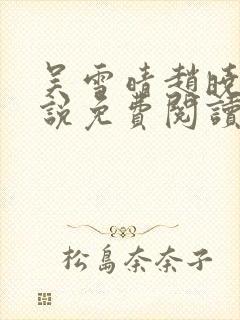 吴雪晴趙曉
說免費閱讀
松島奈奈子